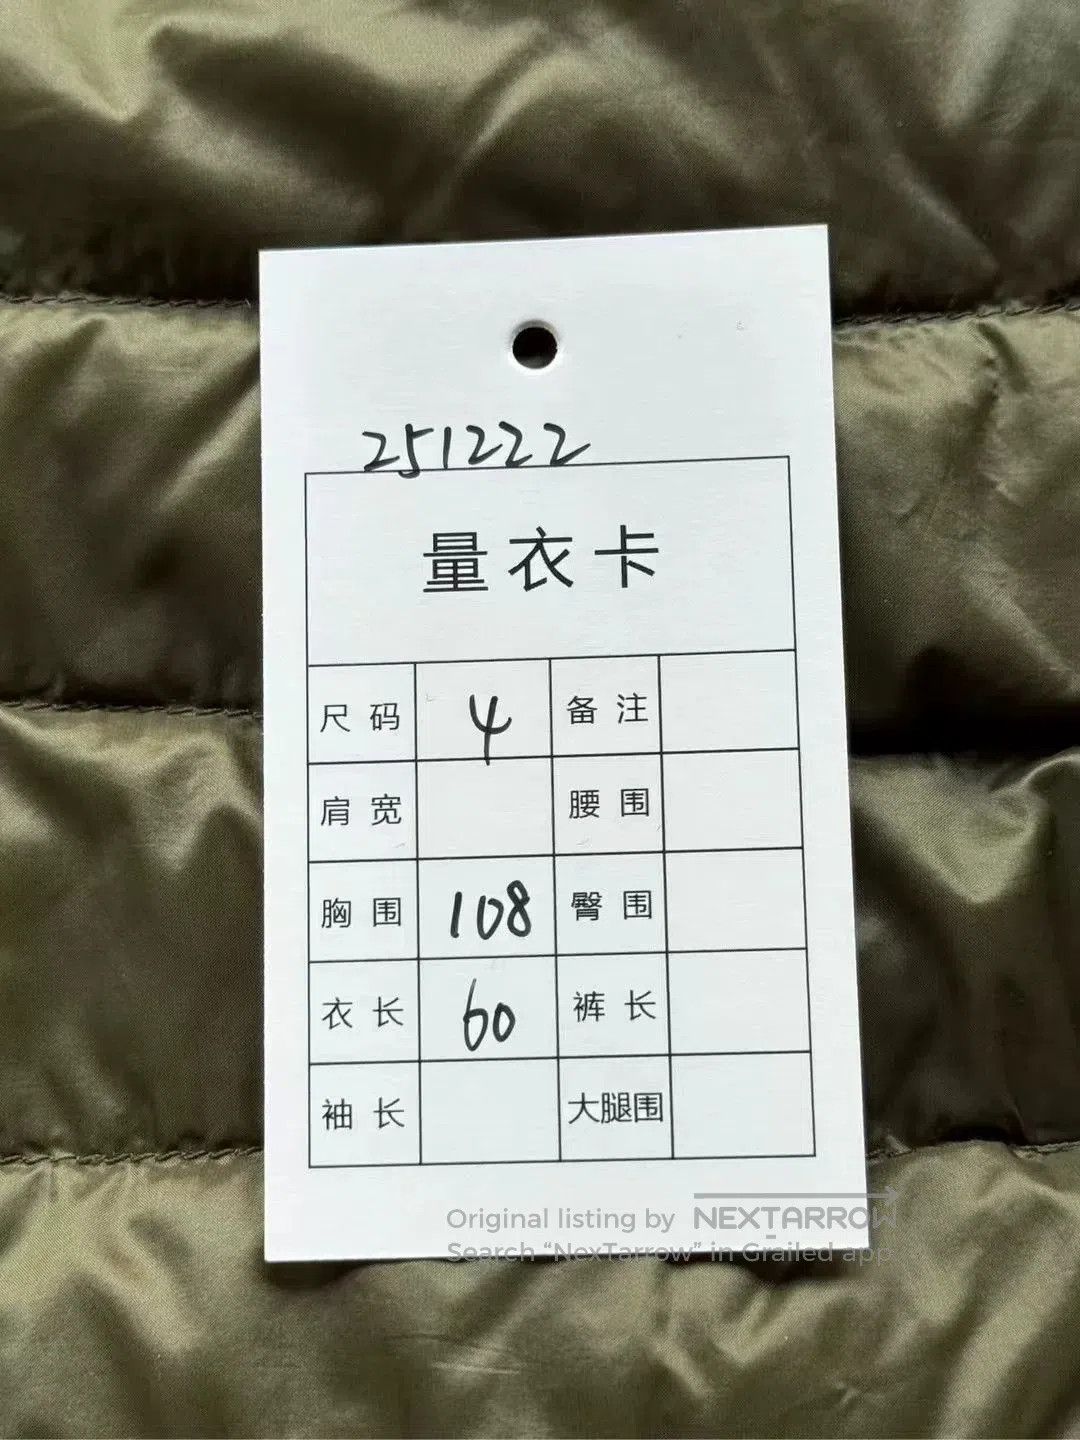 251222
量衣卡
尺码 4 备注
肩宽 腰围
胸围 108 臀围
衣长 60 裤长
袖长 大腿围
Original listing by NEXTARROW
Search “NexTarrow” in Grailed app